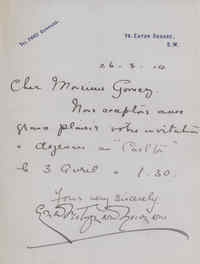 Tel. 2462 Gerrard.
75. Eaton Square,
S.W.
26-3-10
Cher Monsieur
Nous acceptons avec
grand plaisir votre invitation
a dejeuner au "Carlton"
le 3 Avril a 1.30.
Yours very sincerely